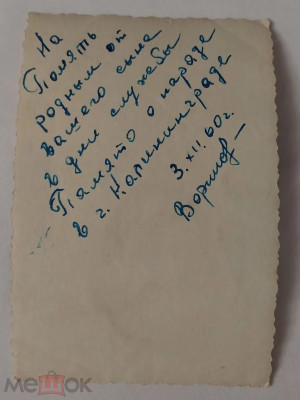 На
Память
родным от
вашего сына
в дни службы
Памято о параде
в г. Калининграде
3.XII.60г.
мешок